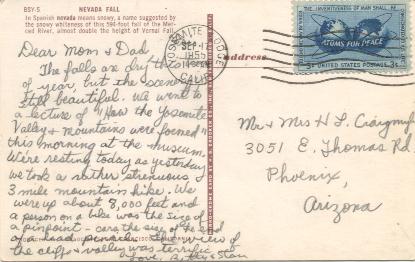 BSY-5 NEVADA FALL
In Spanish nevada means snowy, a name suggested by
the snowy whiteness of this 594-foot fall of the Mer-
ced River, almost double the height of Vernal Fall.
Dear Mom & Dad,
The falls are
of year, but the scenery
still beautiful. We went to
a lecture of "How the Yosemite
Valley & Mountains were formed"
this morning at the museum.
We're resting today as yesterday
we took a rather strenuous
3 mile mountain hike. We
were up about 8,000 feet and
a person on a bike was the size of
a pinpoint - cars the size of the end
of a lead pencil. The view of
the cliffs & valley was terrific
Love,
YOSEMITE LODGE
SEP 12
1955
CALIF.
Address
THE INVENTIVENESS OF MAN SHALL BE
ATOMS FOR PEACE
3¢ UNITED STATES POSTAGE 3¢
Mr & Mrs H L
3051 E. Thomas Rd.
Phoenix,
Arizona